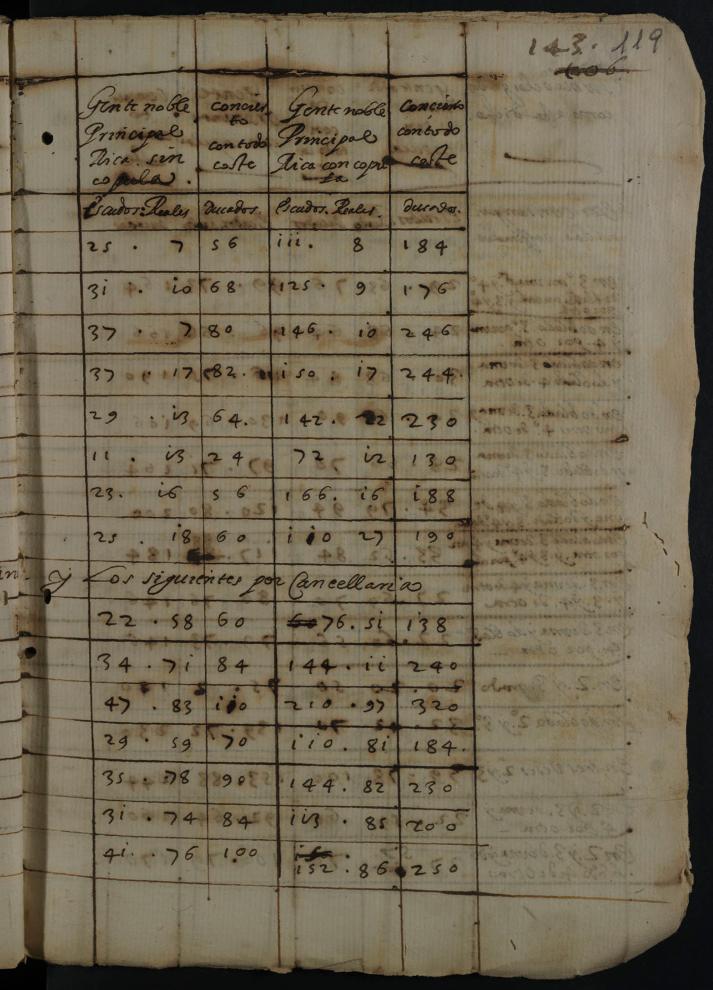 143. 119
106
Gente noble Principal Rica sin copula. concierto con todo coste Gente noble Principal Rica con copula Concierto con todo coste
Escudos. Reales ducados. Escudos. Reales. ducados.
25 . 7 56 iii. 8 184
3i . io 68 125 . 9 176
37 . 7 80 146. io 246
37 . 17 82. i50 . i7 244.
29 . i3 64. 142. 22 230
11 . i3 24 72 i2 130
23. i6 56 166. i6 i88
25 . i8 60 iio 27 190
y Los siguientes por Cancellaria
22 . 58 60 76. 5i 138
34 . 7i 84 144. ii 240
47 . 83 iio 210 . 97 320
29 . 59 70 iio . 8i 184.
35 . 78 90 144. 82 230
3i . 74 84 ii3 . 85 200
4i . 76 100 152 . 86 250